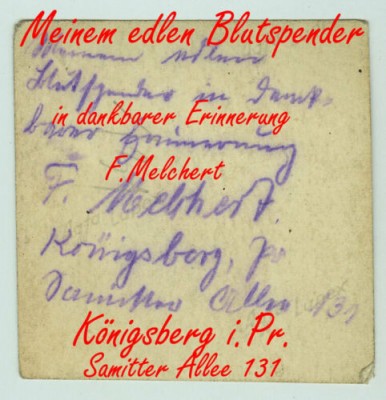 Meinem edlen Blutspender
Meinem edlen
Blutspender in dank-
in dankbarer Erinnerung
barer Erinnerung
F. Melchert
F. Melchert.
Königsberg, Pr
Samitter Allee 131
Königsberg i. Pr.
Samitter Allee 131